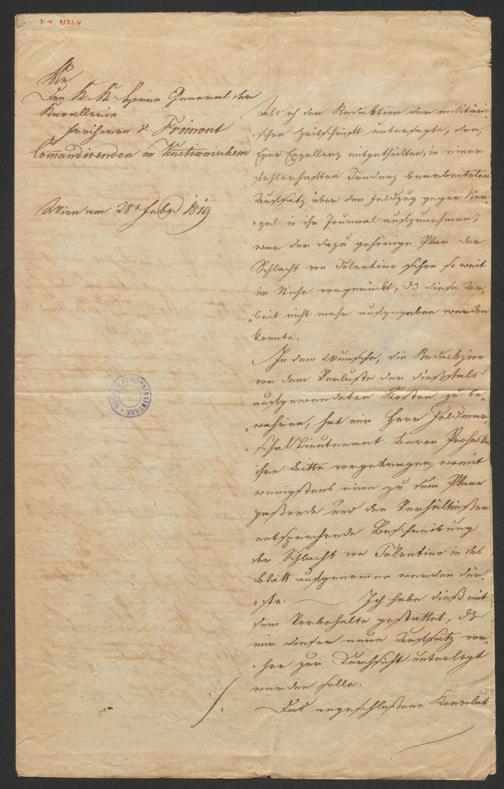 An
Den K. K. Herrn General der
Kavallerie
Freiherrn v. Frimont
Comandirenden im Venetianischen
Wien am 28 1819
Als ich der Redaktion der militäri-
schen Zeitschrift untersagte, den,
Euer Excellenz mitgetheilten, in einer
fehlerhaften Tendenz bearbeiteten
Aufsatz über den Feldzug gegen Nea-
pel in ihr Journal aufzunehmen;
war der dazu gehörige Plan der
Schlacht von Tolentino schon so weit
im Stiche vorgerückt, daß diese Ar-
beit nicht mehr aufgegeben werden
konnte.
In dem Wunsche, die Redaktion
vor dem Verluste der dießfalls
aufgewendeten Kosten zu be-
wahren, hat mir Herr Feldmar-
schal Lieutenant Baron Prohaska
ihre Bitte vorgetragen, womit
wenigstens eine zu dem Plane
passende und den Verhältnissen
entsprechende Beschreibung
der Schlacht von Tolentino in das
Blatt aufgenommen werden dür-
fte. Ich habe dieß mit
dem Vorbehalte gestattet, daß
mir dieser neue Aufsatz vor-
her zur Durchsicht unterlegt
werden solle.
Das angeschlossene